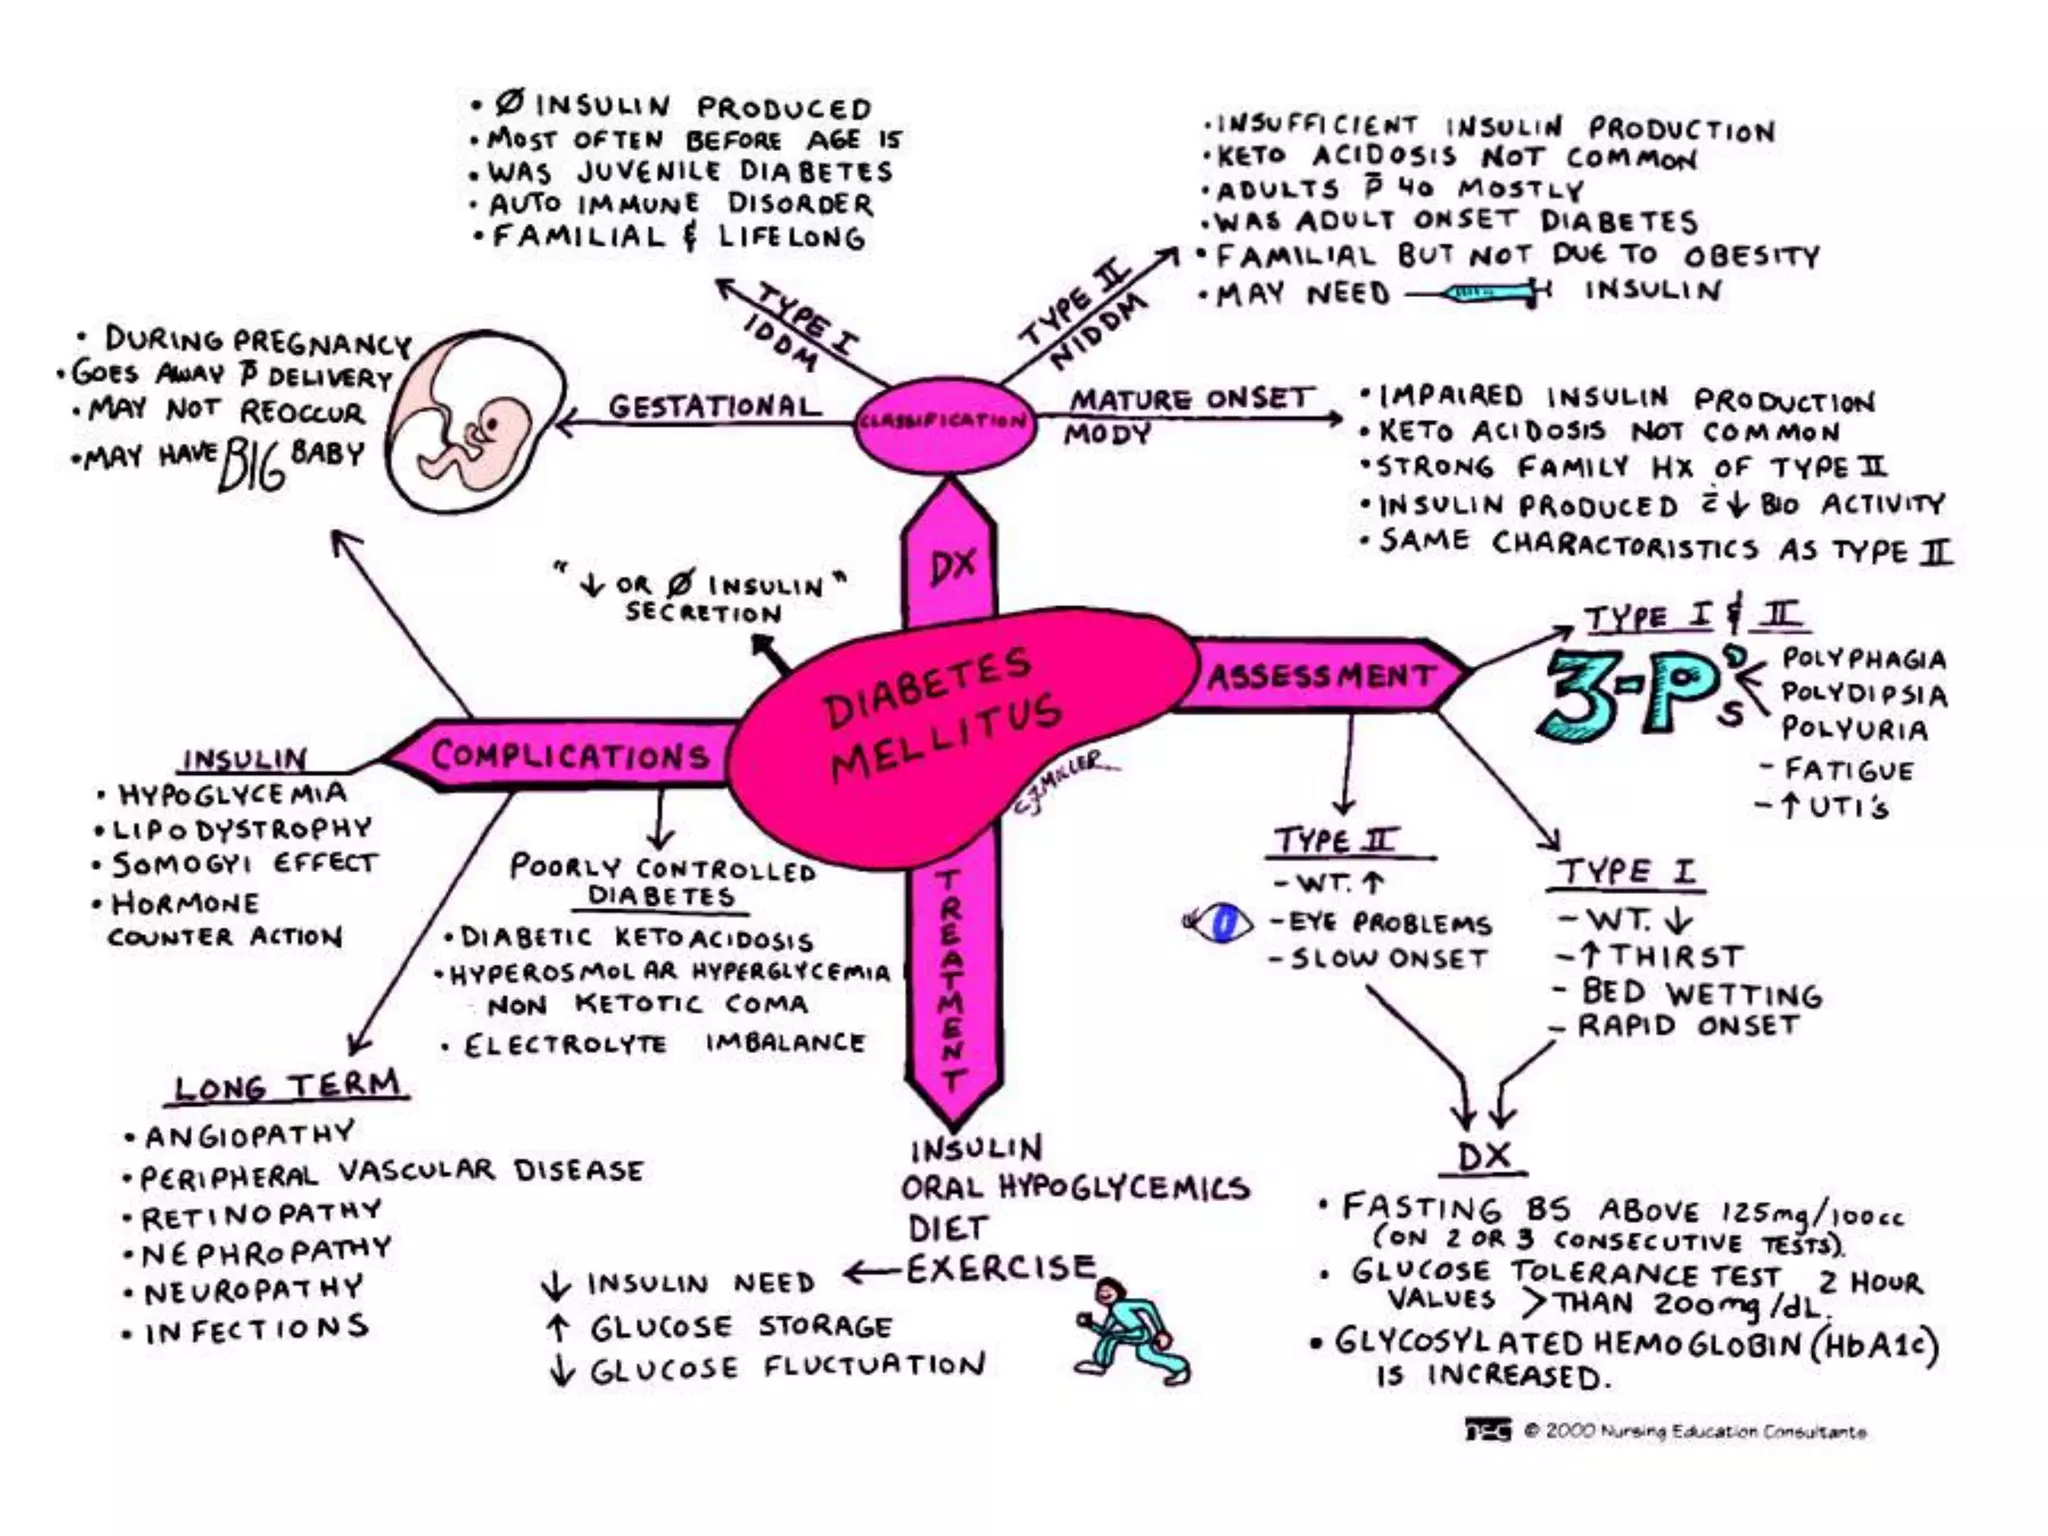 • Ø INSULIN PRODUCED
• MOST OFTEN BEFORE AGE 15
• WAS JUVENILE DIABETES
• AUTO IMMUNE DISORDER
• FAMILIAL & LIFELONG
TYPE I
IDDM
• INSUFFICIENT INSULIN PRODUCTION
• KETO ACIDOSIS NOT COMMON
• ADULTS p̄ 40 MOSTLY
• WAS ADULT ONSET DIABETES
• FAMILIAL BUT NOT DUE TO OBESITY
• MAY NEED INSULIN
TYPE II
NIDDM
• DURING PREGNANCY
• GOES AWAY p̄ DELIVERY
• MAY NOT REOCCUR
• MAY HAVE BIG BABY
GESTATIONAL
CLASSIFICATION
MATURE ONSET
MODY
• IMPAIRED INSULIN PRODUCTION
• KETO ACIDOSIS NOT COMMON
• STRONG FAMILY HX OF TYPE II
• INSULIN PRODUCED c̄ ↓ BIO ACTIVITY
• SAME CHARACTORISTICS AS TYPE II
DX
"↓ OR Ø INSULIN"
SECRETION
DIABETES
MELLITUS
SJ MILLER
ASSESSMENT
TYPE I & II
3-P's
POLYPHAGIA
POLYDIPSIA
POLYURIA
- FATIGUE
- ↑ UTI's
TYPE II
- WT. ↑
- EYE PROBLEMS
- SLOW ONSET
TYPE I
- WT. ↓
- ↑ THIRST
- BED WETTING
- RAPID ONSET
DX
• FASTING BS ABOVE 125mg/100cc
(ON 2 OR 3 CONSECUTIVE TESTS).
• GLUCOSE TOLERANCE TEST 2 HOUR
VALUES > THAN 200mg/dL.
• GLYCOSYLATED HEMOGLOBIN (HbA1c)
IS INCREASED.
COMPLICATIONS
INSULIN
• HYPOGLYCEMIA
• LIPODYSTROPHY
• SOMOGYI EFFECT
• HORMONE
COUNTER ACTION
POORLY CONTROLLED
DIABETES
• DIABETIC KETOACIDOSIS
• HYPEROSMOLAR HYPERGLYCEMIA
NON KETOTIC COMA
• ELECTROLYTE IMBALANCE
LONG TERM
• ANGIOPATHY
• PERIPHERAL VASCULAR DISEASE
• RETINOPATHY
• NEPHROPATHY
• NEUROPATHY
• INFECTIONS
TREATMENT
INSULIN
ORAL HYPOGLYCEMICS
DIET
EXERCISE
↓ INSULIN NEED
↑ GLUCOSE STORAGE
↓ GLUCOSE FLUCTUATION
© 2000 Nursing Education Consultants